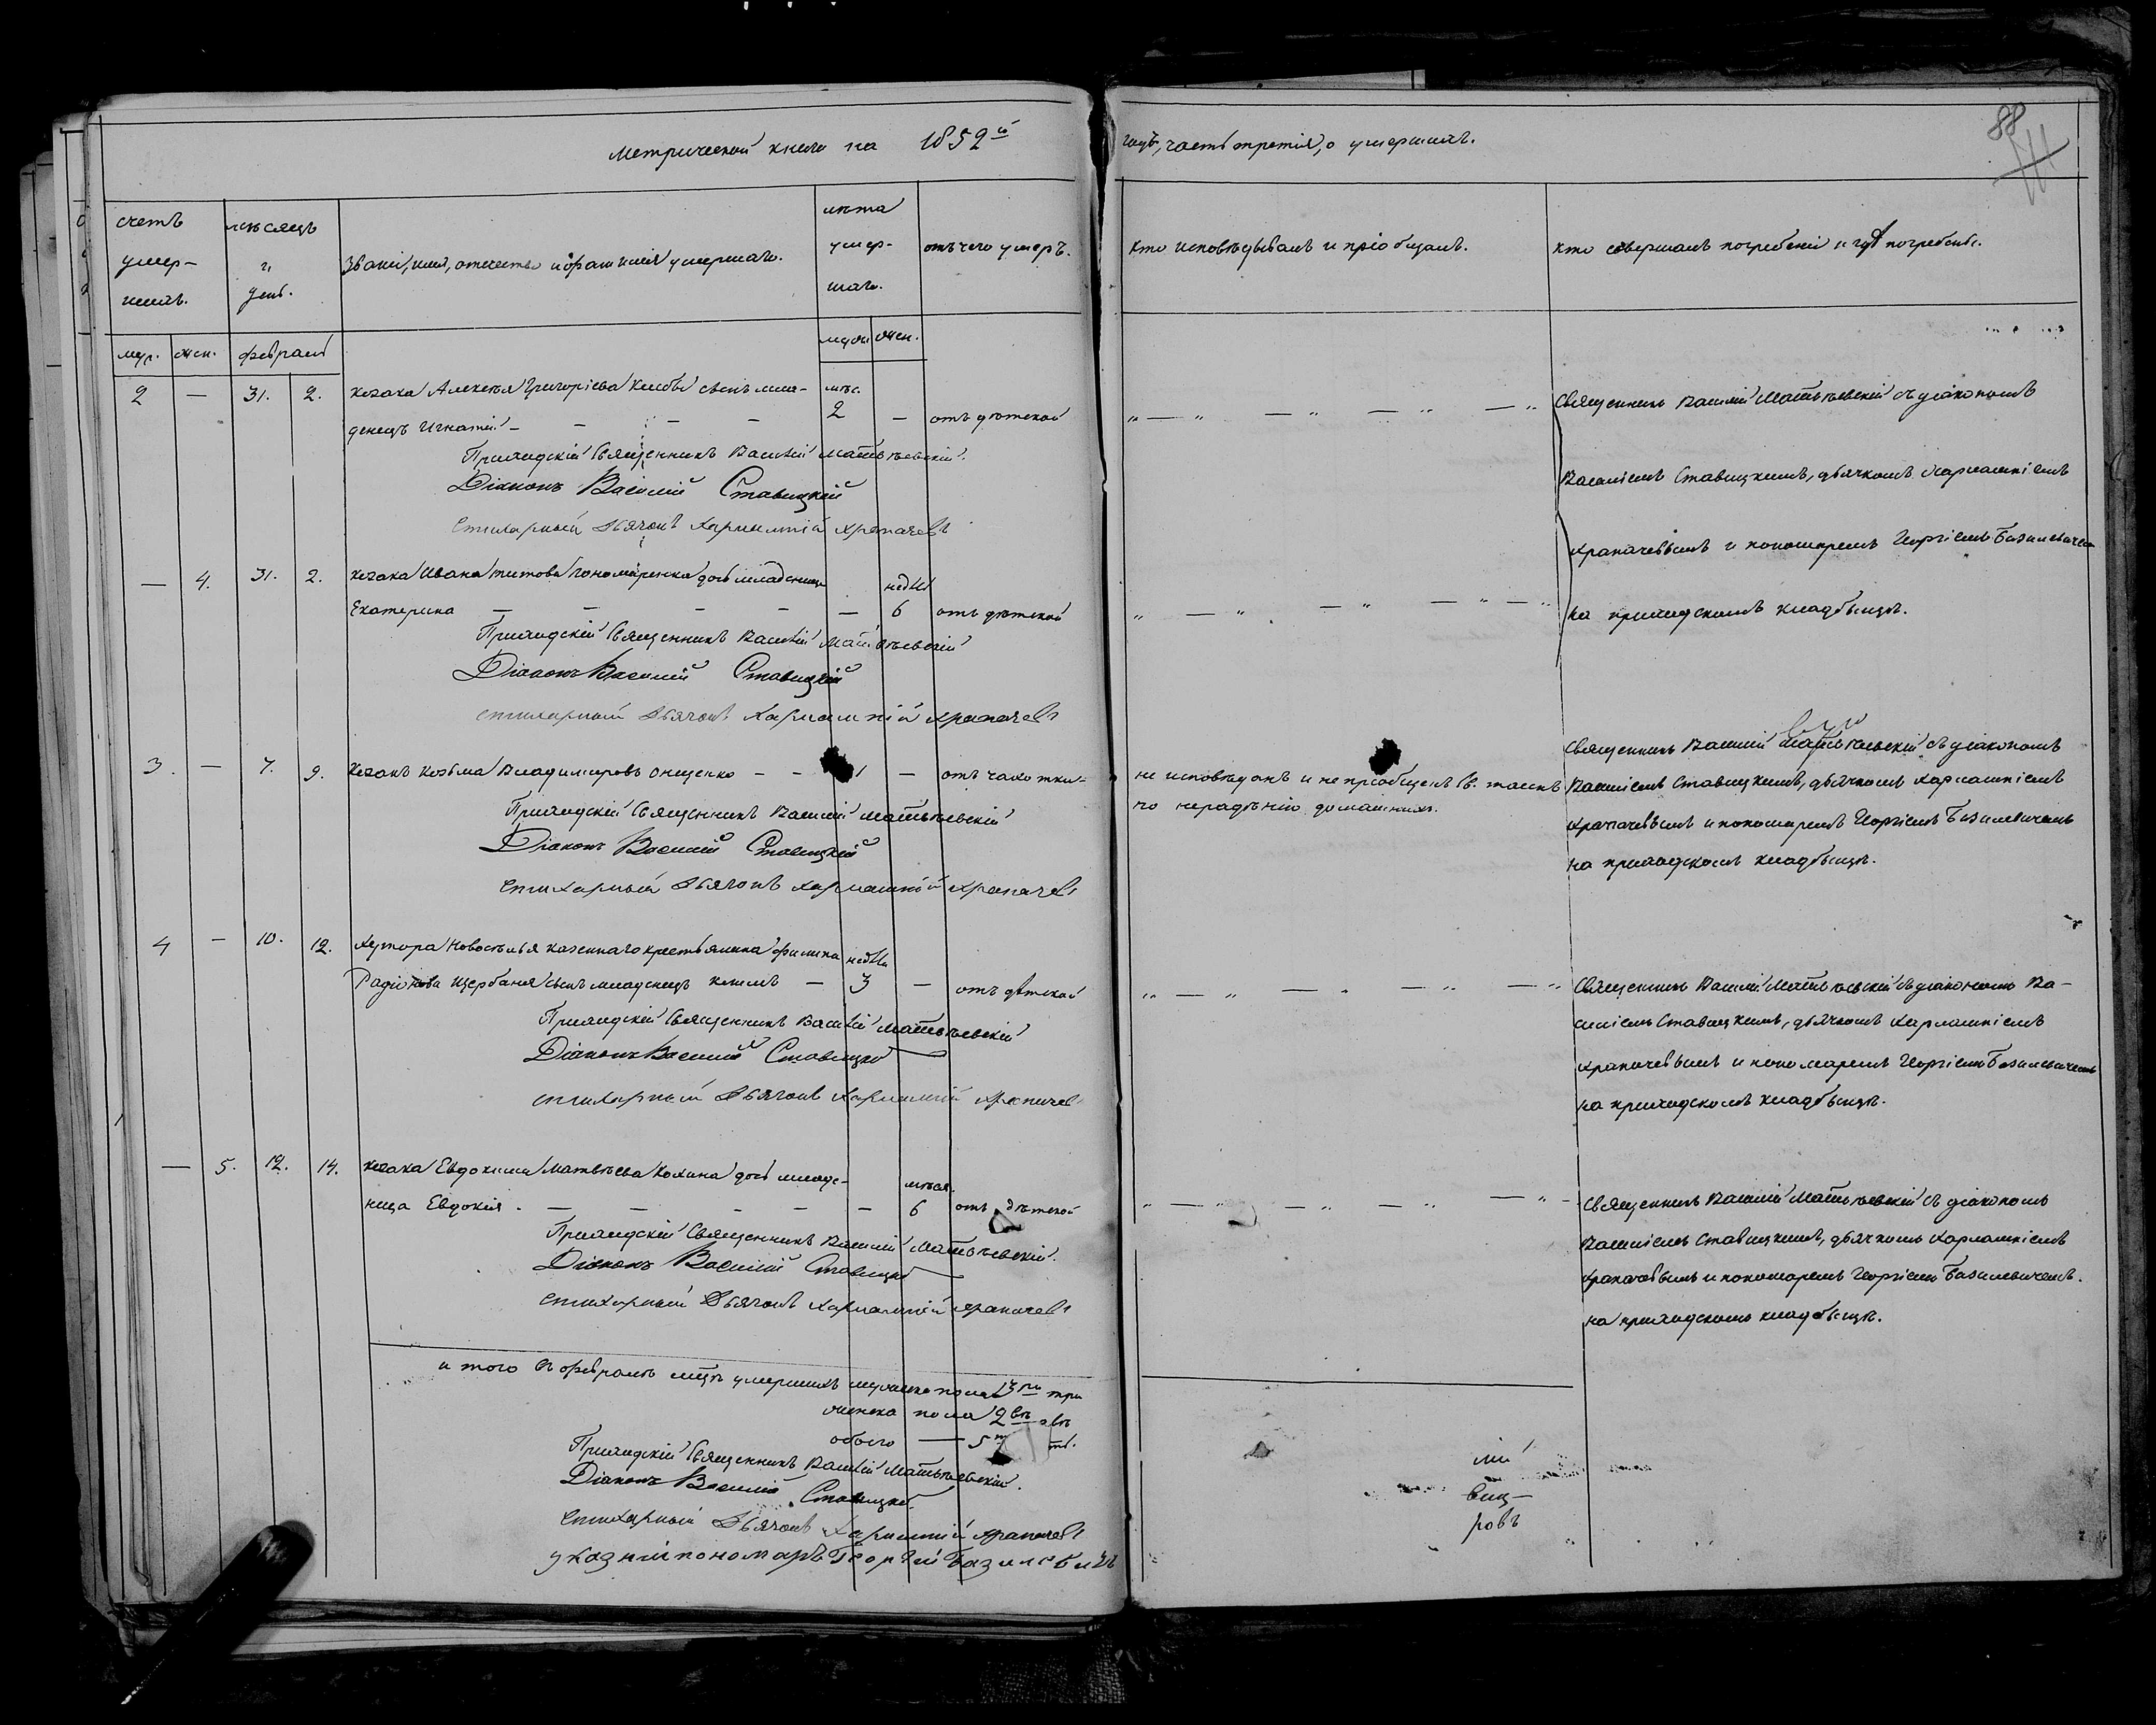 Метрической книги на 1852й
годъ, часть третія, о умершихъ.
88
счетъ умер-шихъ.
мѣсяцъ и день.
Званіе, имя, отечество и фамилія умершаго.
лѣта умер-шаго.
отъ чего умеръ.
кто исповѣдывалъ и пріобщалъ.
кто совершалъ погребеніе и гдѣ погребены.
муж. жен. февраль
муж жен.
2 — 31. 2. козака Алексѣя Григоріева сынъ мла- мѣс.
денецъ Игнатій — — — — 2 — отъ дѣтской
Приходскій Священникъ Василій Матвѣевскій.
Діаконъ Василій Ставицкій
Стихарный Дьячокъ Харлампій Храпачевъ
Священникъ Василій Матвѣевскій съ діакономъ
Василіемъ Ставицкимъ, дьячкомъ Харлампіемъ
Храпачевымъ и пономаремъ Георгіемъ Базилевичемъ
на приходскомъ кладбищѣ.
— 4. 31. 2. козака Ивана Титова Пономаренка дочь младеница недѣл
Екатерина — — — — — 6 отъ дѣтской
Приходскій Священникъ Василій Матвѣевскій
Діаконъ Василій Ставицкій
стихарный Дьячокъ Харлампій Храпачевъ
3. — 7. 9. козакъ Козьма Владимировъ Онищенко — — 1 — отъ чахотки
не исповѣданъ и не пріобщенъ Св. таинъ
по нерадѣнію домашнихъ.
Приходскій Священникъ Василій Матвѣевскій
Діаконъ Василій Ставицкій
Стихарный Дьячокъ Харлампій Храпачевъ
Священникъ Василій Матвѣевскій съ діакономъ
Василіемъ Ставицкимъ, дьячкомъ Харлампіемъ
Храпачевымъ и пономаремъ Георгіемъ Базилевичемъ
на приходскомъ кладбищѣ.
4 — 10. 12. Хутора Новоселья казеннаго крестьянина Филипа недѣл
Радіонова Щербаня сынъ младенецъ — 3 — отъ дѣтской
Приходскій Священникъ Василій Матвѣевскій
Діаконъ Василій Ставицкій
стихарный Дьячокъ Харлампій Храпачевъ
Священникъ Василій Матвѣевскій съ діакономъ Ва-
силіемъ Ставицкимъ, дьячкомъ Харлампіемъ
Храпачевымъ и пономаремъ Георгіемъ Базилевичемъ
на приходскомъ кладбищѣ.
— 5. 12. 14. козака Евдокима Матвѣева дочь младе- мѣся.
ница Евдокія. — — — — — 6 отъ дѣтской
Приходскій Священникъ Василій Матвѣевскій.
Діаконъ Василій Ставицкій
стихарный Дьячокъ Харлампій Храпачевъ
Священникъ Василій Матвѣевскій съ діакономъ
Василіемъ Ставицкимъ, дьячкомъ Харлампіемъ
Храпачевымъ и пономаремъ Георгіемъ Базилевичемъ.
на приходскомъ кладбищѣ.
и того въ февралѣ мцѣ умершихъ мужеска пола 3ри три
женска пола 2вѣ двѣ
обоего — 5
Приходскій Священникъ Василій Матвѣевскій.
Діаконъ Василій Ставицкій
Стихарный Дьячокъ Харлампій Храпачевъ
указній пономарь Георгій Базилевичъ
лій
виц-
ровъ